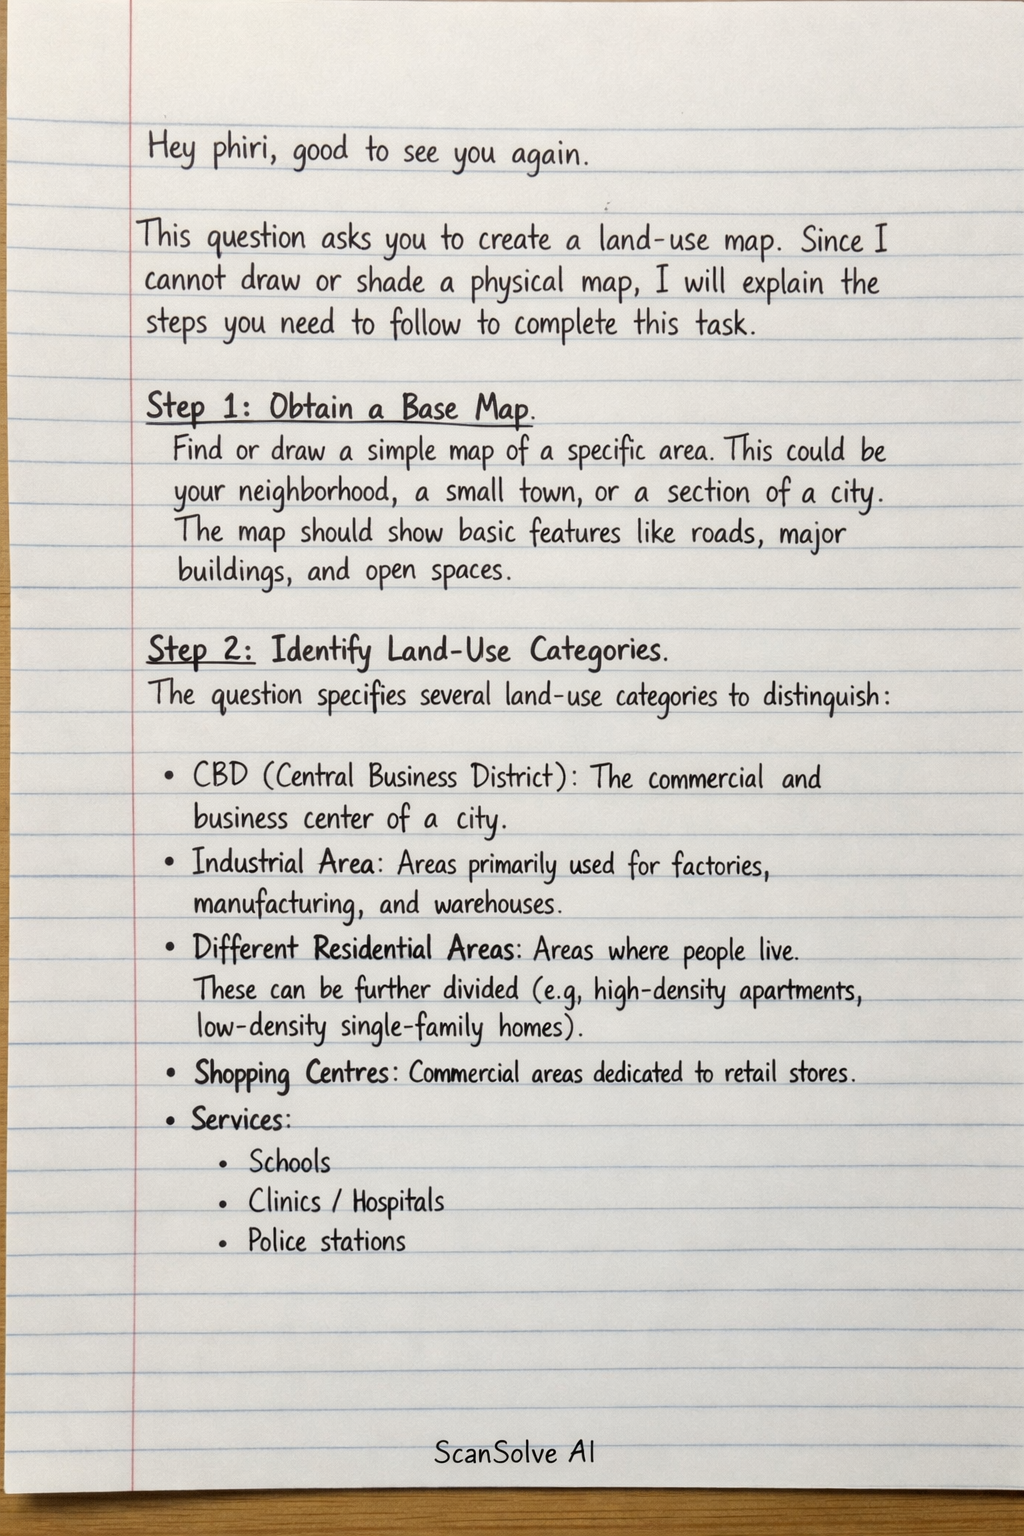 Hey phiri, good to see you again.
This question asks you to create a land-use map. Since I
cannot draw or shade a physical map, I will explain the
steps you need to follow to complete this task.
Step 1: Obtain a Base Map.
Find or draw a simple map of a specific area. This could be
your neighborhood, a small town, or a section of a city.
The map should show basic features like roads, major
buildings, and open spaces.
Step 2: Identify Land-Use Categories.
The question specifies several land-use categories to distinguish:
• CBD (Central Business District): The commercial and
business center of a city.
• Industrial Area: Areas primarily used for factories,
manufacturing, and warehouses.
• Different Residential Areas: Areas where people live.
These can be further divided (e.g, high-density apartments,
low-density single-family homes).
• Shopping Centres: Commercial areas dedicated to retail stores.
• Services:
• Schools
• Clinics / Hospitals
• Police stations
ScanSolve AI